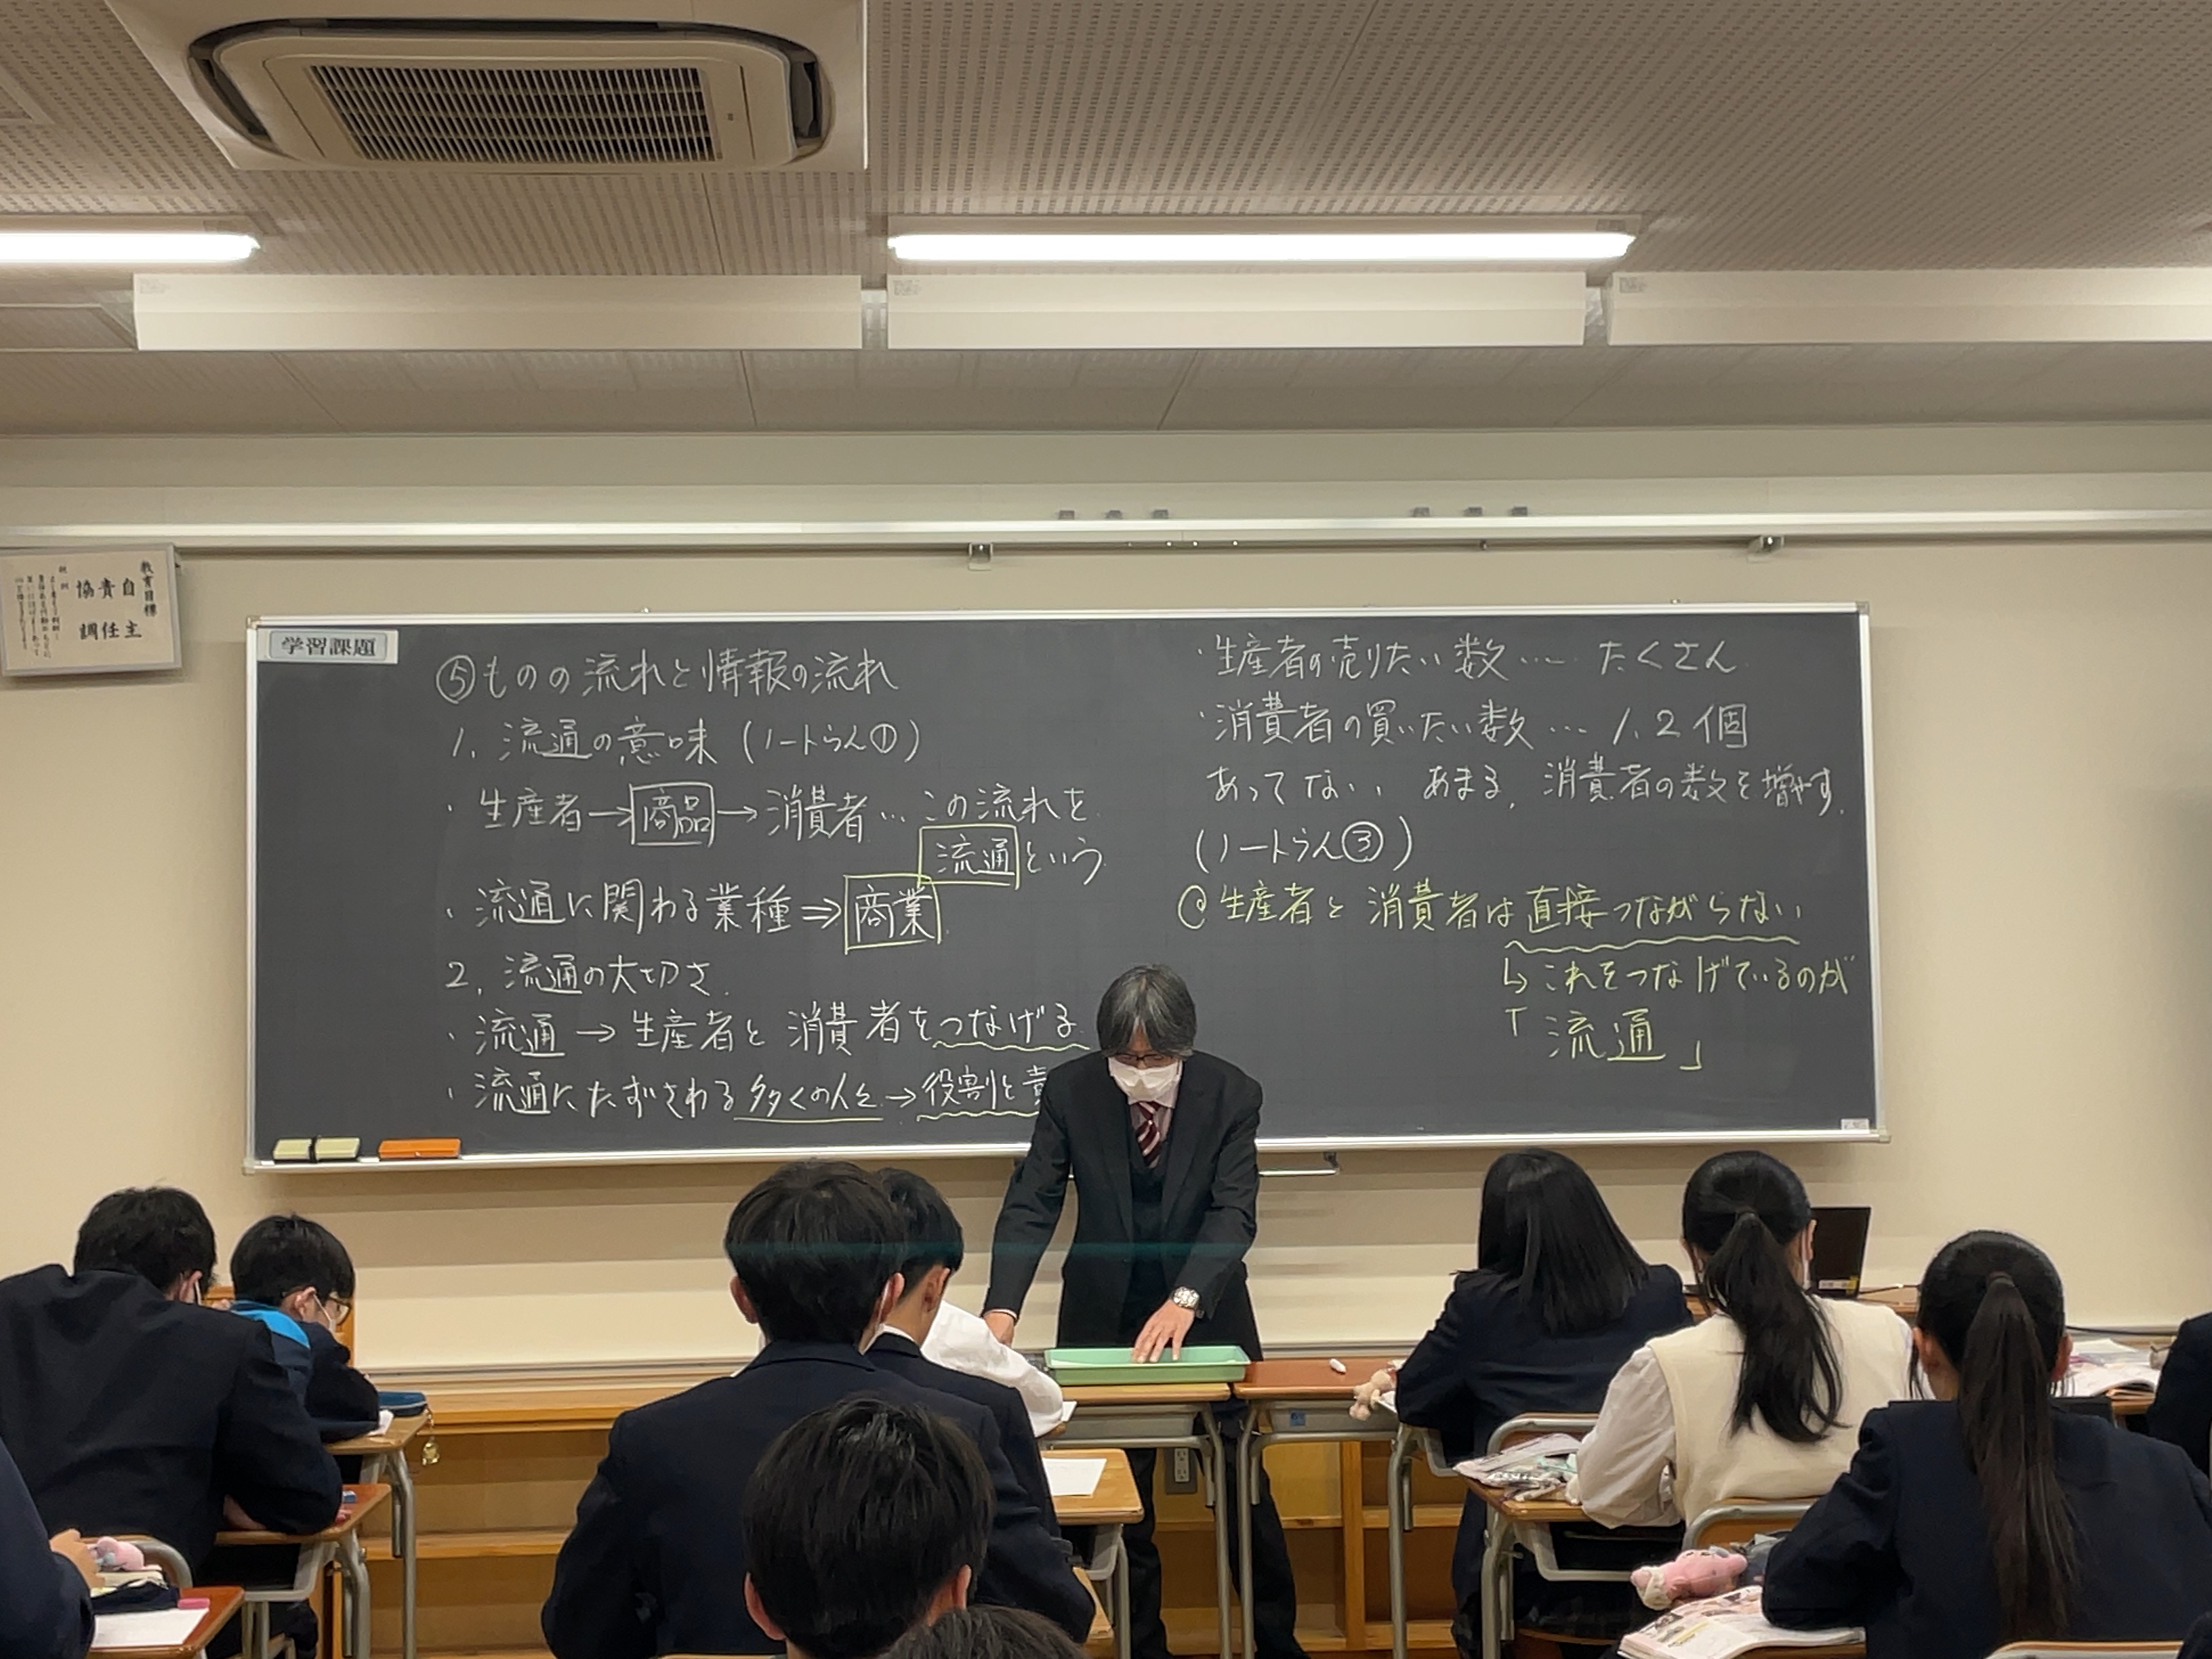 教育目標
自主
責任
協調
学習課題
⑤ものの流れと情報の流れ
1. 流通の意味(ノートらん①)
・生産者→商品→消費者…この流れを
流通という
・流通に関わる業種⇒商業
2. 流通の大切さ
・流通→生産者と消費者をつなげる
・流通にたずさわる多くの人々→役割と責
・生産者の売りたい数…. たくさん
・消費者の買いたい数… 1、2個
あってない、あまる、消費者の数を増やす。
(ノートらん③)
生産者と消費者は直接つながらない
↳これをつなげているのが
「流通」